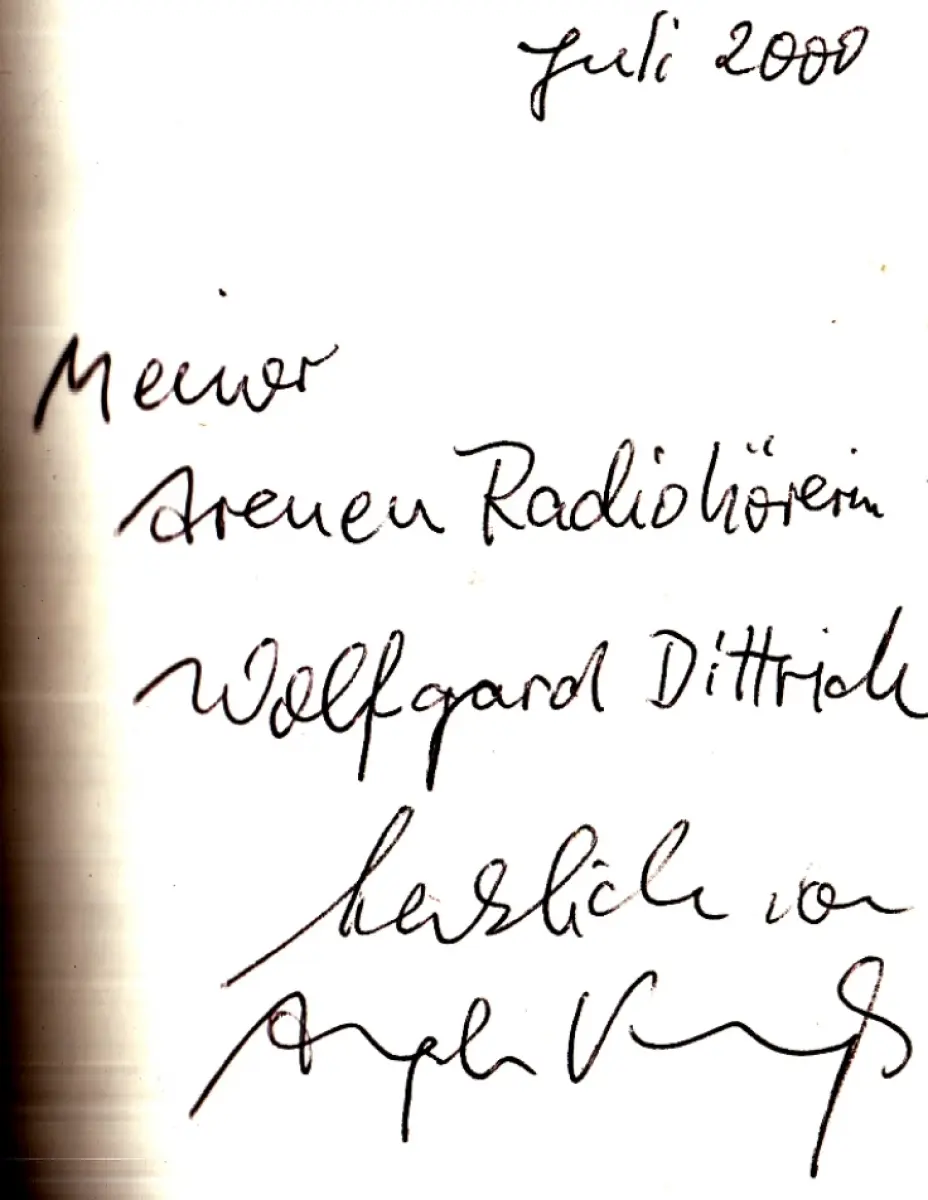 Juli 2000
Meiner
treuen Radiohörerin
Wolfgard Dittrich
herzlich von